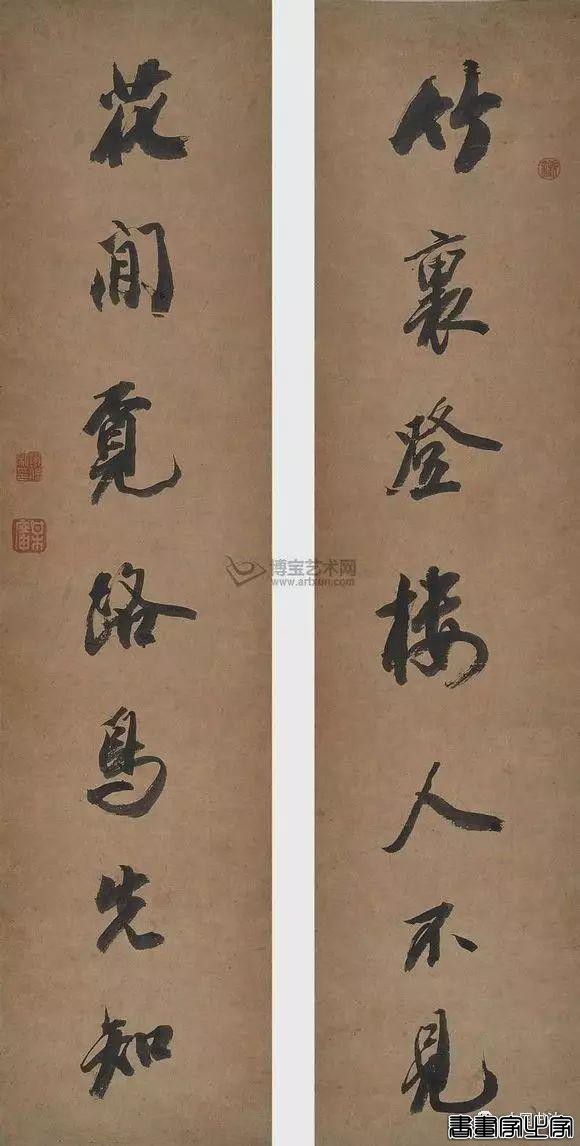 竹裏登樓人不見
花間覓路鳥先知
博宝艺术网
www.artxun.com
書畫家之家